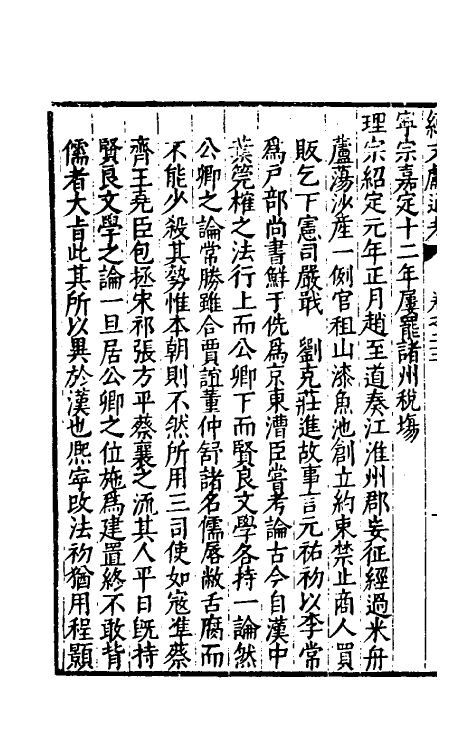 續文獻通考 卷之二十三
寧宗嘉定十二年屢罷諸州稅塲
理宗紹定元年正月趙至道奏江淮州郡妄征經過米舟
蘆蕩沙產一例官租山漆魚池創立約束禁止商人買
販乞下憲司嚴戢 劉克莊進故事言元祐初以李常
爲戸部尚書鮮于侁爲京東漕臣嘗考論古今自漢中
葉筦榷之法行上而公卿下而賢良文學各持一論然
公卿之論常勝雖合賈誼董仲舒諸名儒唇敝舌腐而
不能少殺其勢惟本朝則不然所用三司使如寇準蔡
齊王堯臣包拯宋祁張方平蔡襄之流其人平日旣持
賢良文學之論一旦居公卿之位施爲建置終不敢背
儒者大㫖此其所以異於漢也熈寧改法初猶用程顥